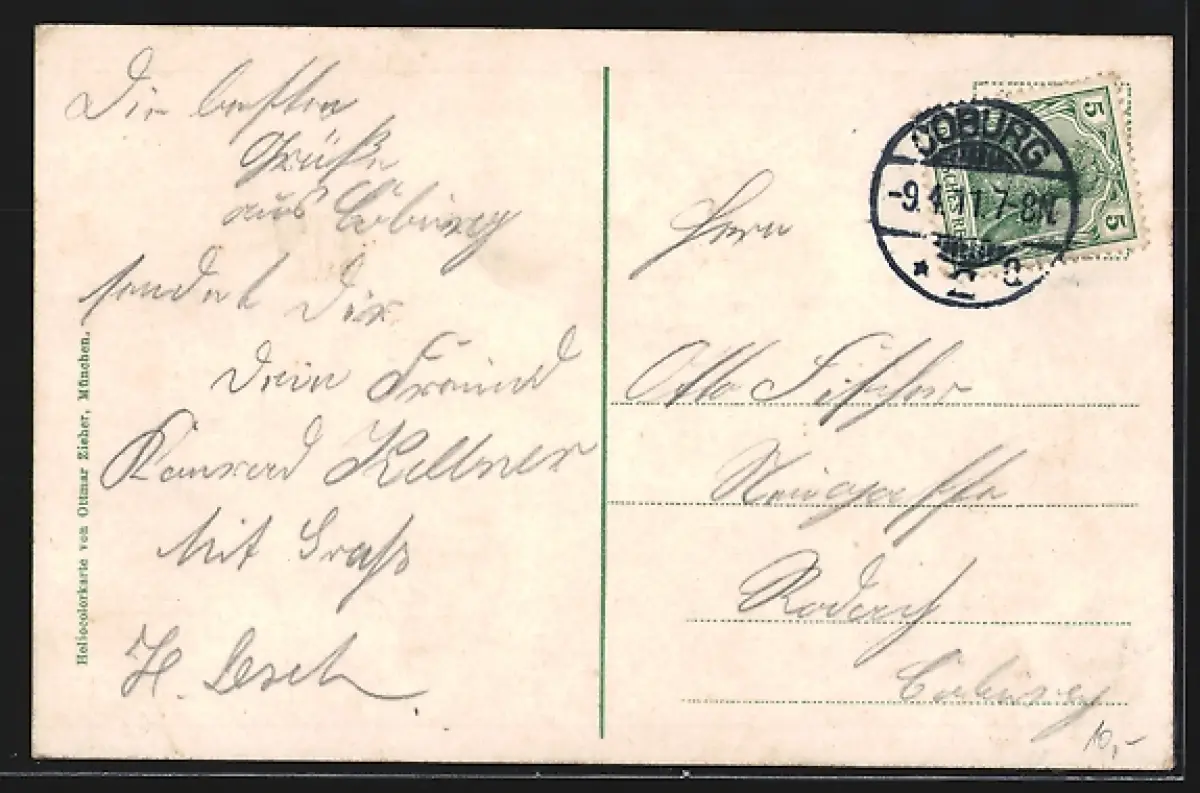 Die besten
Grüße
aus Coburg
sendet Dir
Dein Freund
Konrad Kellner
Mit Gruß
H. Lesch
Heliocolorkarte von Ottmar Zieher, München.
COBURG
-9.4.11.7-8N.
* 2 c
5
5
Herrn
Otto Fischer
Neugasse
Rodach
Coburg
10,-